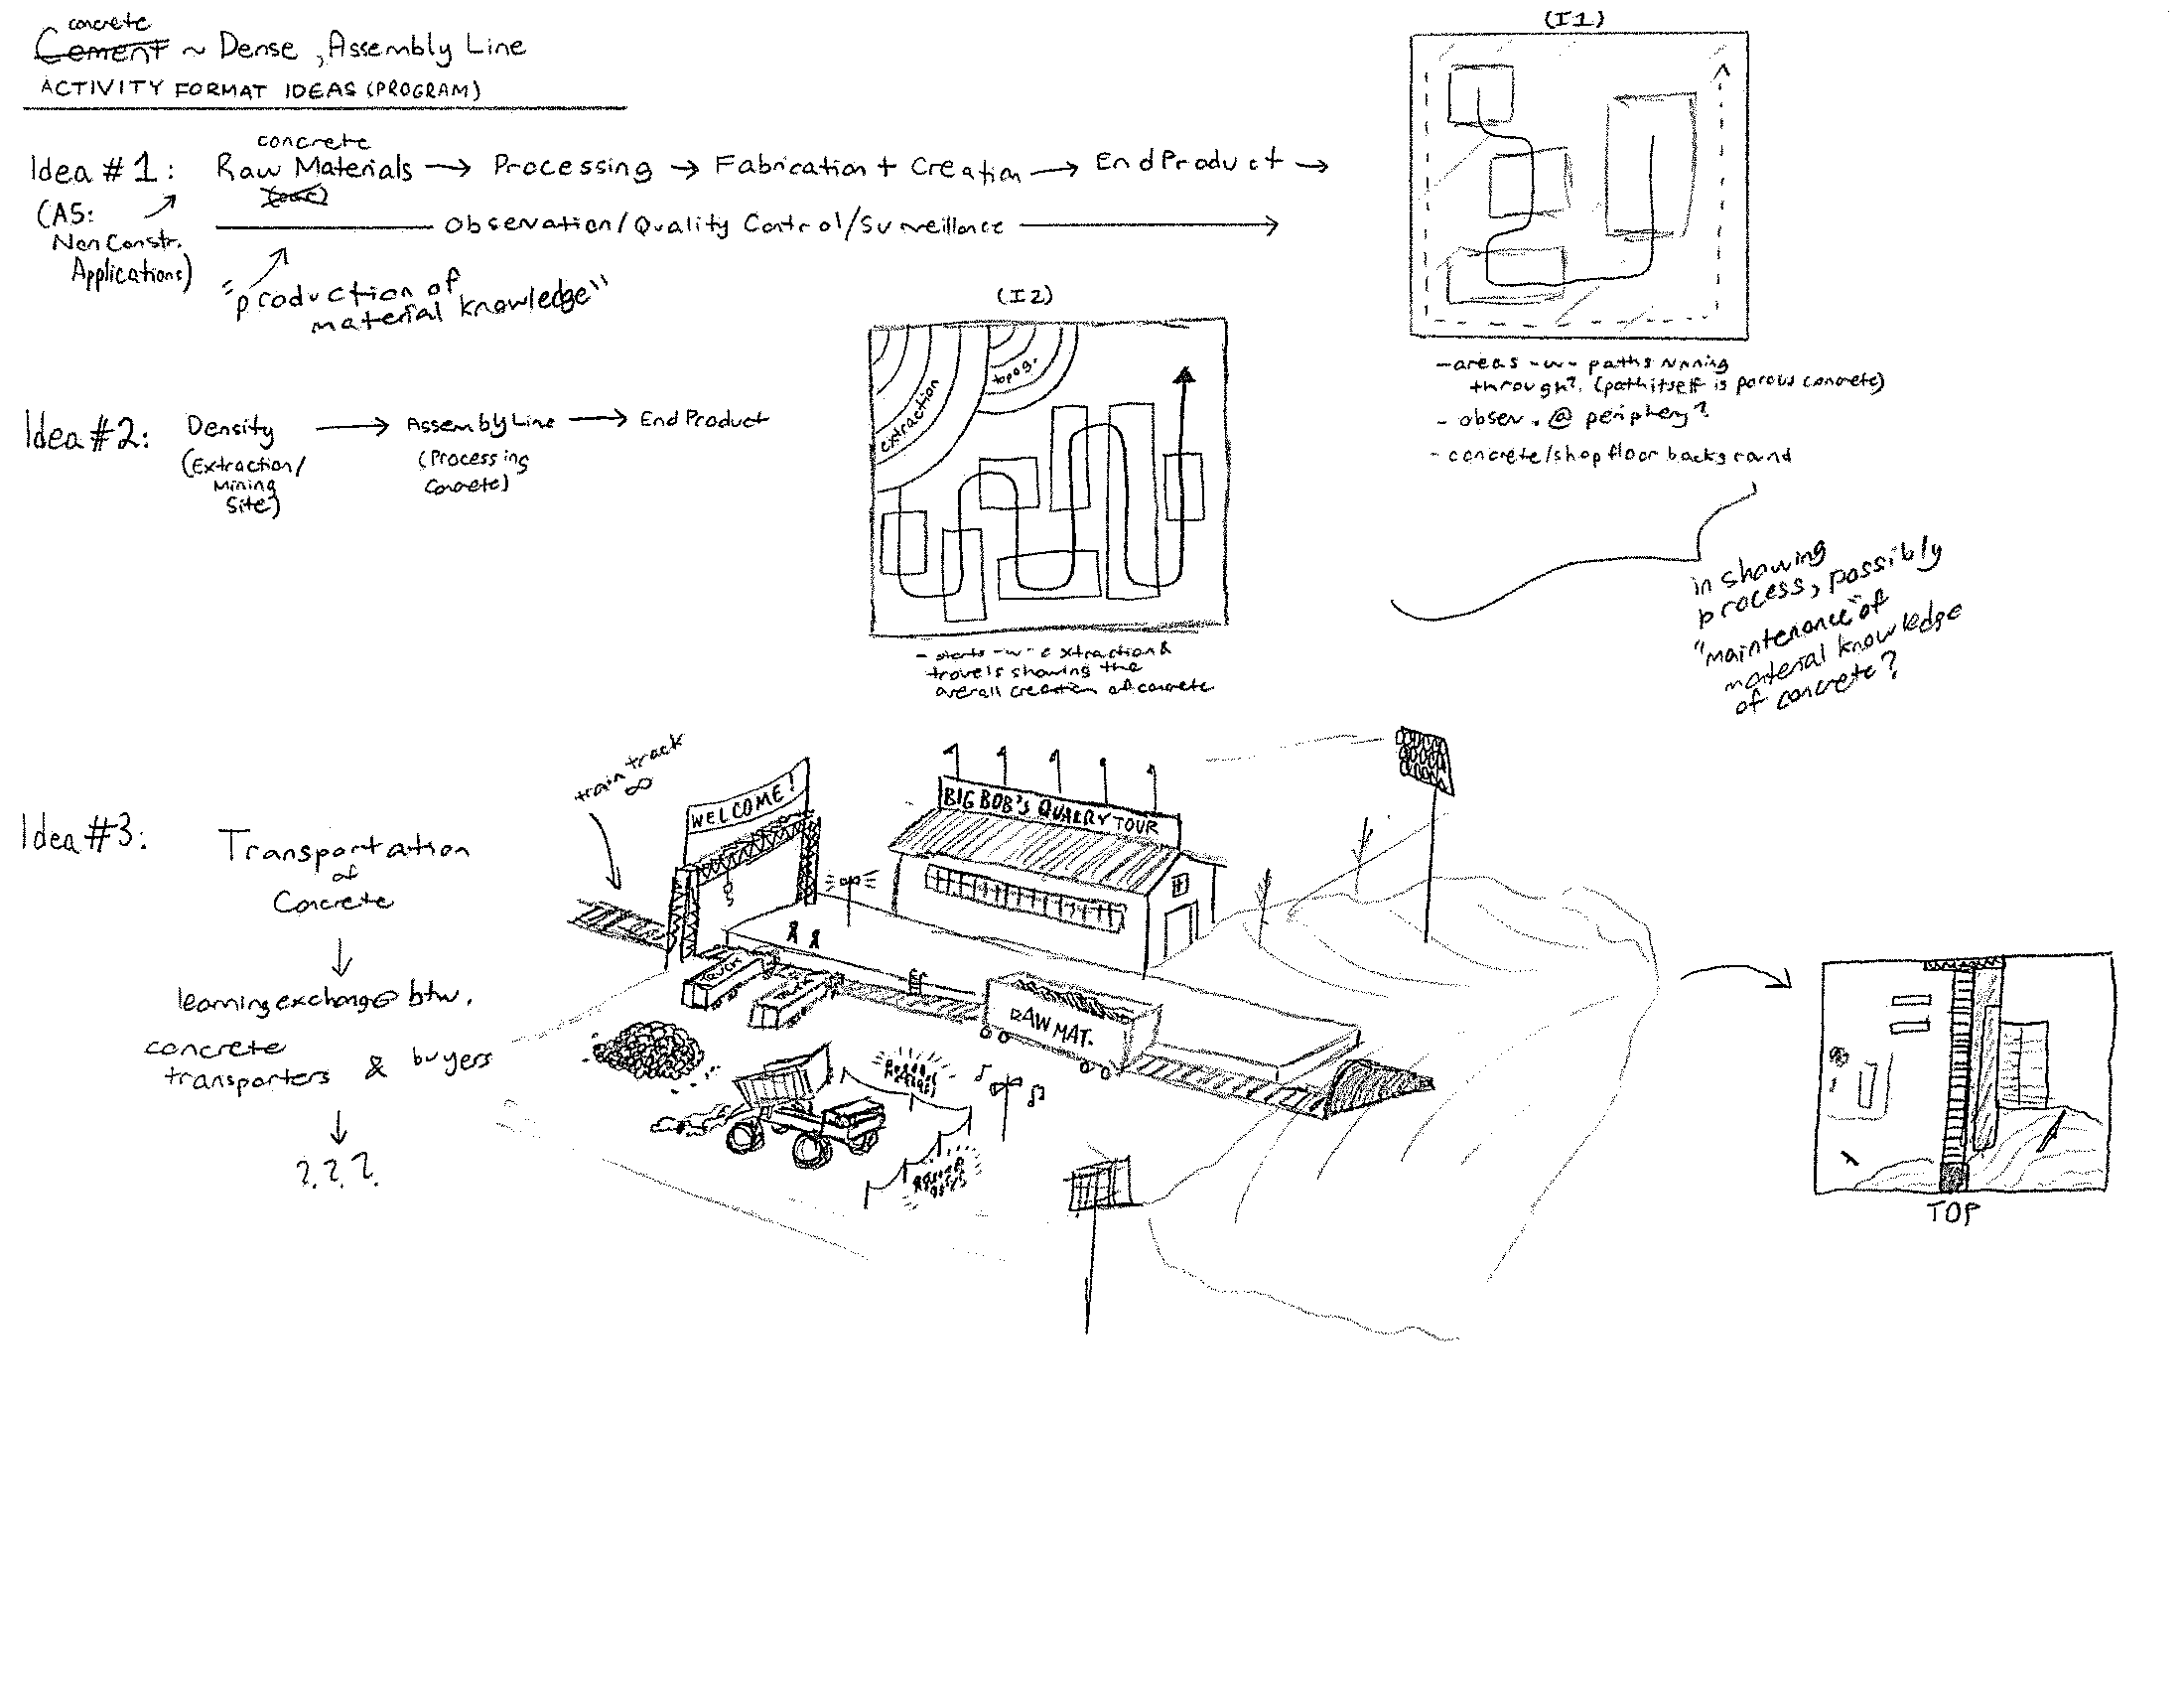 concrete
Cement ~ Dense, Assembly Line
ACTIVITY FORMAT IDEAS (PROGRAM)
Idea #1:
(AS:
Non Constr.
Applications)
concrete
Raw Materials → Processing → Fabrication + Creation → End Product →
Observation/Quality Control/Surveillance
"production of
material knowledge"
(I1)
-areas -w- paths running
through? (path itself is porous concrete)
- observ. @ periphery?
- concrete/shop floor background
in showing
process, possibly
"maintenance" of
material knowledge
of concrete?
Idea #2:
Density → Assembly Line → End Product
(Extraction/
Mining
Site)
(Processing
Concrete)
(I2)
extraction
topog.
- starts -w- extraction &
travels showing the
overall creation of concrete
Idea #3:
Transportation
of
Concrete
↓
learning exchange btw.
concrete
transporters & buyers
↓
?.?.?.
train track
∞
WELCOME!
BIG BOB's QUARRY TOUR
TRUCK
TRUCK
RAW MAT.
TOP